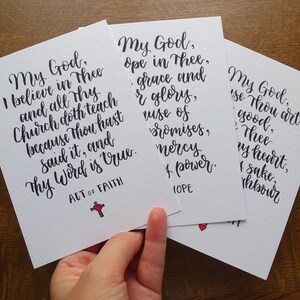 My God,
I believe in Thee
and all Thy
Church doth teach
because Thou hast
said it, and
Thy Word is true.
ACT OF FAITH
My God,
ope in Thee,
grace and
r glory,
use of
promises,
mercy
power.
HOPE
My God,
se Thou art
good,
Thee
y heart,
sake,
ghbour